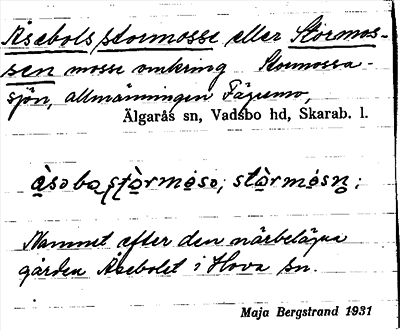 Åsebols stormosse eller Stormos-
sen mosse omkring Stormossa-
sjön, allmänningen Fägremo,
Älgarås sn, Vadsbo hd, Skarab. l.
Namnet efter den närbelägna
gården Åsebolet i Hova sn.
Maja Bergstrand 1931